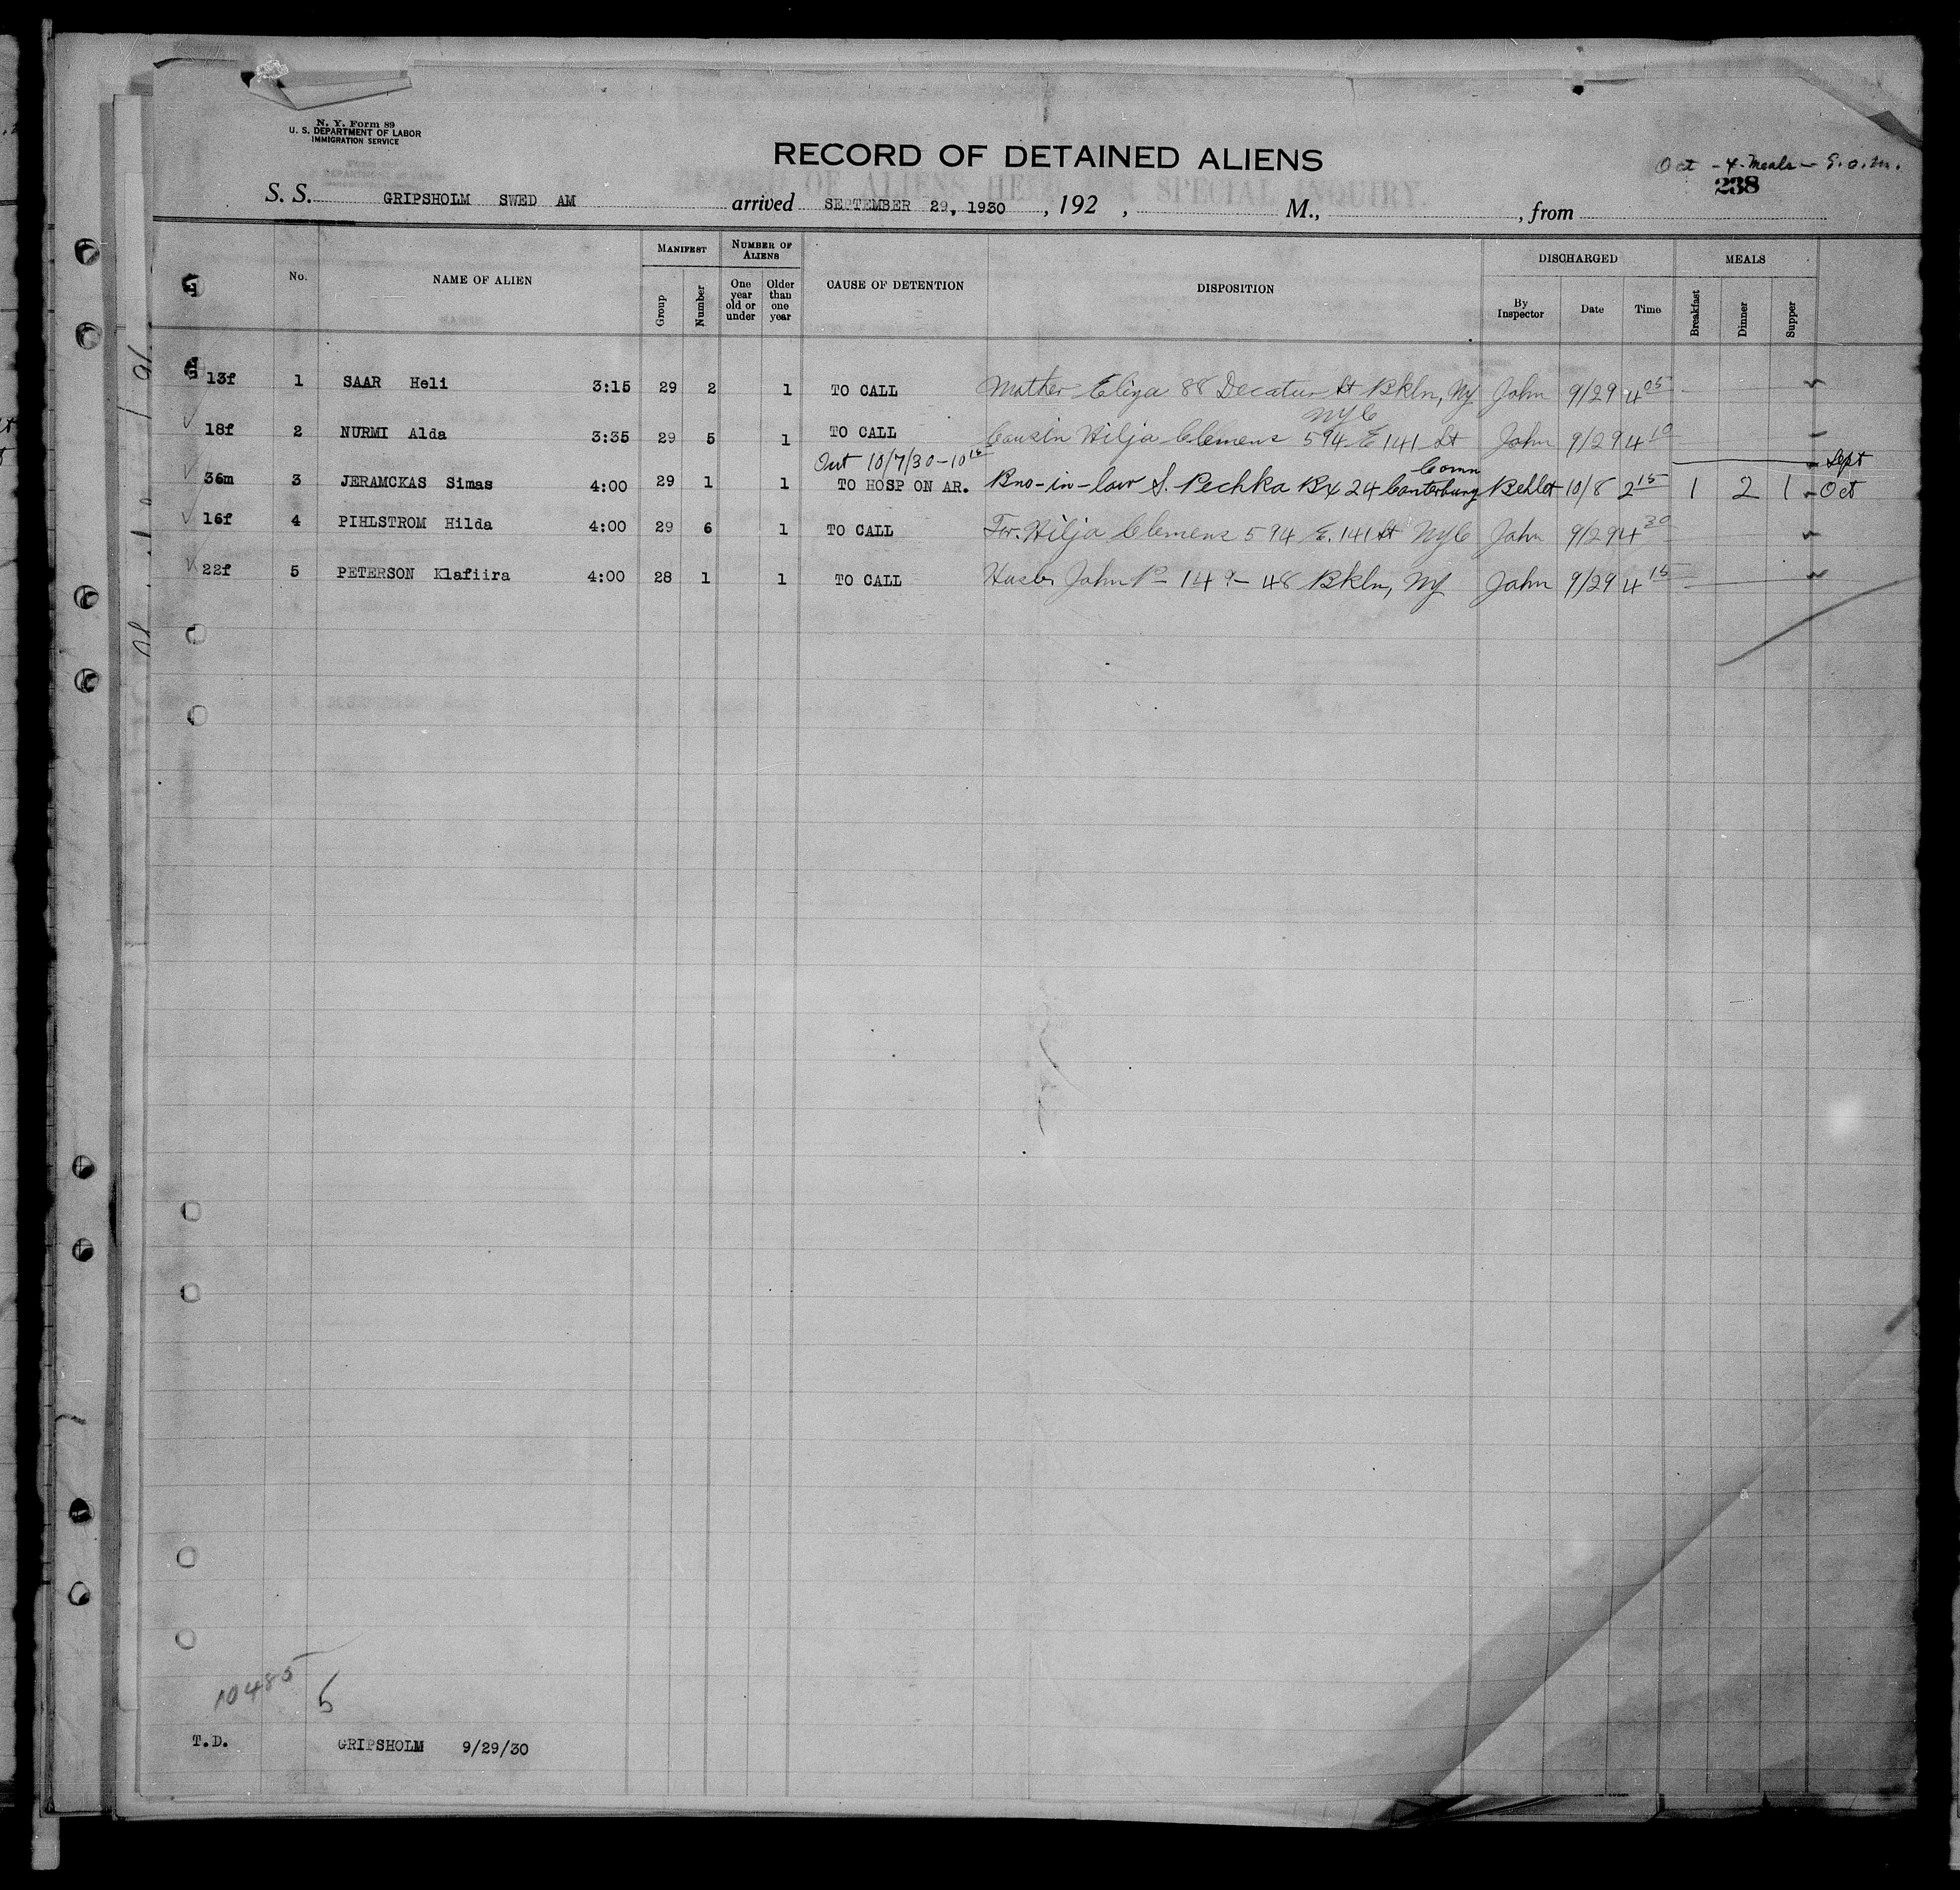 N. Y. Form 89
U. S. DEPARTMENT OF LABOR
IMMIGRATION SERVICE
RECORD OF DETAINED ALIENS
Oct - 4 - Meals - S.O.M.
238
S. S. GRIPSHOLM SWED AM arrived SEPTEMBER 29, 1930, 192 , M., , from
No. NAME OF ALIEN MANIFEST Group Number NUMBER OF ALIENS One year old or under Older than one year CAUSE OF DETENTION DISPOSITION DISCHARGED By Inspector Date Time MEALS Breakfast Dinner Supper
13f 1 SAAR Heli 3:15 29 2 1 TO CALL Mother Eliza 88 Decatur St Bkln, NY John 9/29 4 05
NYC
18f 2 NURMI Alda 3:35 29 5 1 TO CALL Cousin Hilja Clemens 594 E 141 St John 9/29 4 10
Out 10/7/30 - 10 15 Conn Sept
36m 3 JERAMCKAS Simas 4:00 29 1 1 TO HOSP ON AR. Bro-in-law S. Pechka Bx 24 Canterbury 10/8 2 15 1 2 1 Oct
16f 4 PIHLSTROM Hilda 4:00 29 6 1 TO CALL Hilja Clemens 594 E. 141 St NYC John 9/29 4 30
22f 5 PETERSON Klafiira 4:00 28 1 1 TO CALL John P- 149- 48 Bkln, NY John 9/29 4 15
10485
5
T.D. GRIPSHOLM 9/29/30